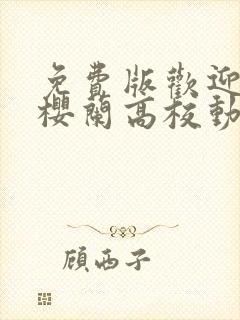 免費版歡迎
櫻蘭高校動
顾西子